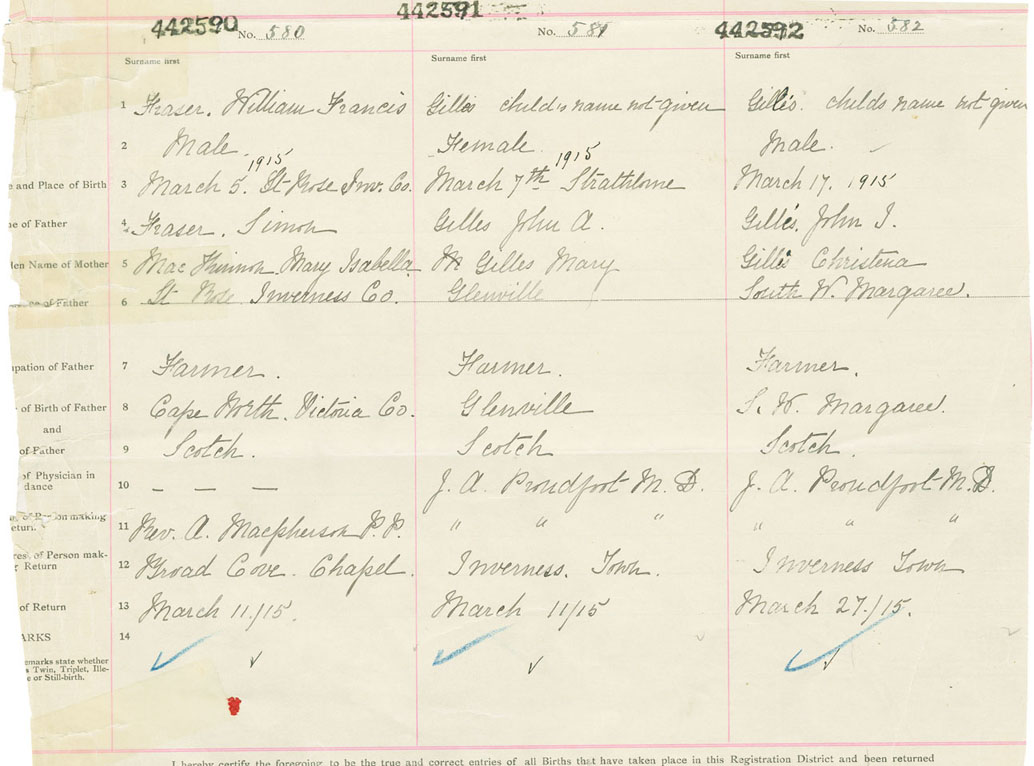 442590 No. 580 442591 No. 581 442592 No. 582
Surname first Surname first Surname first
1 Fraser. William Francis Gillis child's name not given Gillis. childs name not given
2 Male. Female Male.
e and Place of Birth 3 March 5. 1915 St Rose Inv. Co. March 7th 1915 Strathlorne March 17. 1915
e of Father 4 Fraser. Simon Gilles John A. Gillis, John J.
den Name of Mother 5 Mac Kinnon Mary Isabella Gilles Mary Gillis Christena
ce of Father 6 St Rose Inverness Co. Glenville South W. Margaree.
pation of Father 7 Farmer. Farmer. Farmer.
of Birth of Father 8 Cape North. Victoria Co. Glenville S. W. Margaree.
and
of Father 9 Scotch. Scotch Scotch.
of Physician in
dance 10 — — — J. A. Proudfoot M. D. J. A. Proudfoot M. D.
of Person making
eturn. 11 Rev. A. Macpherson P. P. " " " " " "
res. of Person mak-
g Return 12 Broad Cove. Chapel. Inverness. Town. Inverness Town
of Return 13 March 11/15. March 11/15 March 27/15.
ARKS 14
emarks state whether
s Twin, Triplet, Ille-
e or Still-birth.
I hereby certify the foregoing to be the true and correct entries of all Births that have taken place in this Registration District and been returned